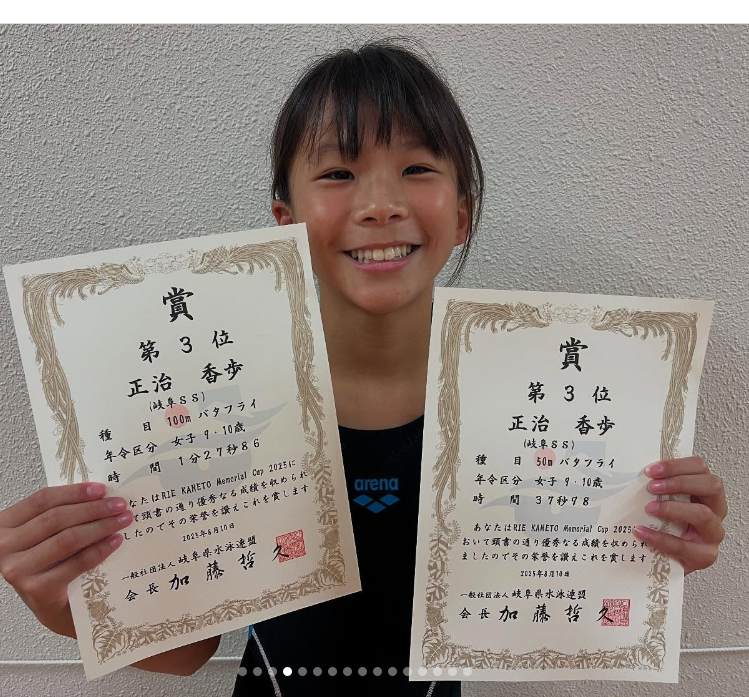 賞
第 3 位
正治 香歩
(岐阜SS)
種 目 100m バタフライ
年令区分 女子 9・10歳
時 間 1分27秒86
あなたはRIE KANETO Memorial Cup 2025に
て頭書の通り優秀なる成績を収められ
したのでその栄誉を讃えこれを賞します
2025年8月10日
一般社団法人 岐阜県水泳連盟
会長 加藤哲久
arena
賞
第 3 位
正治 香歩
(岐阜SS)
種 目 50m バタフライ
年令区分 女子 9・10歳
時 間 37秒98
あなたはRIE KANETO Memorial Cup 2025
おいて頭書の通り優秀なる成績を収められ
ましたのでその栄誉を讃えこれを賞します
2025年8月10日
一般社団法人 岐阜県水泳連盟
会長 加藤哲久